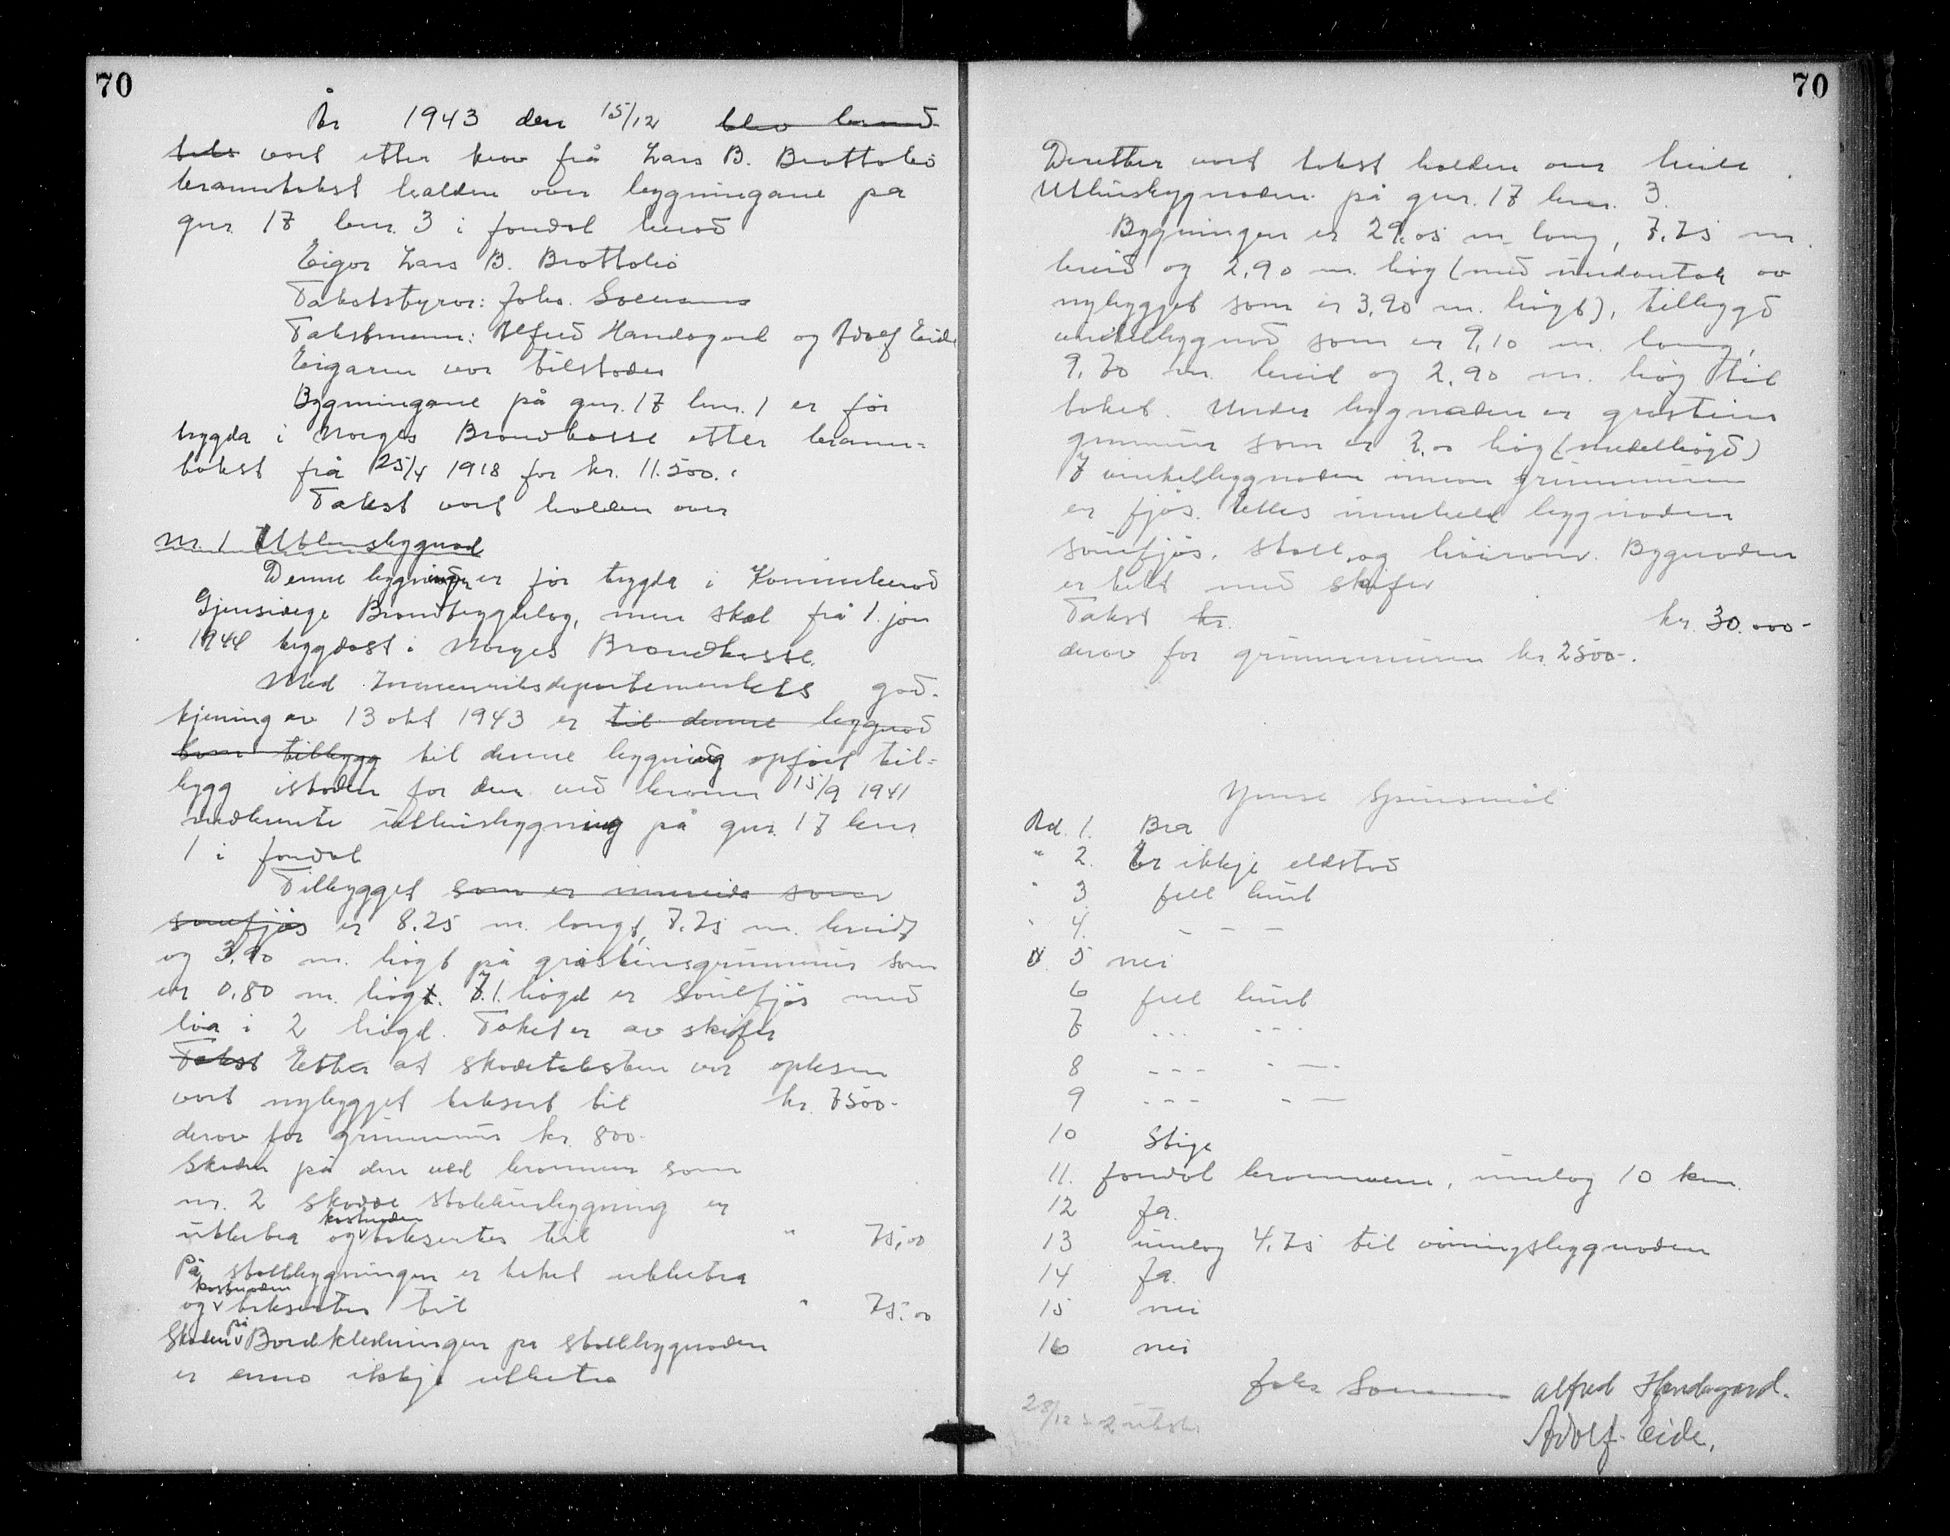 70
År 1943 den 15/12 blev brand
takst vart etter krav frå Lars B. Brattebø
branntakst halden over bygningane på
gnr. 17 bnr. 3 i Jondal herad
Eigar Lars B. Brattebø
Takststyrar: Johs.
Takstmenn: Alfred Handagard og Adolf Eide
Eigaren var tilstades
Bygningane på gnr. 17 bnr. 1 er før
trygda i Norges Brandkasse etter brann-
takst frå 25/4 1918 for kr. 11.500.
Takst vart halden over
Nr. 1 Uthusbygnad
Denne bygning er før trygda i Kvinnherad
Gjensidige Brandtrygdelag, men skal frå 1. jan
1944 trygdast i Norges Brandkasse.
Med Innenriksdepartementets god-
kjening av 13 okt 1943 er til denne bygnad
som tilbygg til denne bygning opført til-
bygg istaden for den ved brann 15/9 1941
nedbrente uthusbygning på gnr. 17 bnr
1 i Jondal
Tilbygget som er innreida som
sauefjøs er 8.25 m. langt, 7.75 m. breidt
og 3,90 m. høgt på gråsteinsgrunnmur som
er 0.80 m. høgt. I 1. høgd er sauefjøs med
løa i 2 høgd. Taket er av skifer
Takst Etter at skadetaksten var oplesen
vart nybygget taksert til kr. 7500-
derav for grunnmur kr. 800-
Skaden på den ved brannen som
nr. 2 skadde stallhusbygning er
utbetra og kostnaden taksertes til " 75,00
På stallbygningen er taket utbetra
og kostnaden taksertes til " 75.00
Skaden på Bordkledningen på stallbygnaden
er enno ikkje utbetra
70
Deretter vart takst halden over heile
Uthusbygnaden på gnr. 17 bnr. 3.
Bygningen er 29.05 m lang, 7.75 m.
breid og 2,90 m. høg (med undantak av
nybygget som er 3,90 m. høgt), tilbygd
vinkelbygnad som er 9,10 m. lang,
9.70 m. breid og 2,90 m. høg til
taket. Under bygnaden er gråsteins
grunnmur som er 2.00 høg (medelhøgd)
I vinkelbygnaden innan grunnmuren
er fjøs. Elles inneheld bygnaden
sauefjøs, stall og høirom. Bygnaden
er tekt med skifer
Takst kr. kr. 30.000-
derav for grunnmuren kr 2500-.
Ymse Spursmål
Ad. 1. Bra
" 2. Er ikkje eldstad
" 3 fell burt
" 4. - - -
" 5 nei
6 fell burt
7 - - - - - -
8 - - - - - -
9 - - - - -
10 Stige
11. Jondal brannvern, umlag 10 km.
12 Ja.
13 umlag 4.75 til våningsbygnaden
14 Ja.
15 nei
16 nei
Johs Alfred Handagard.
Adolf Eide.
28/12 2 utskr.